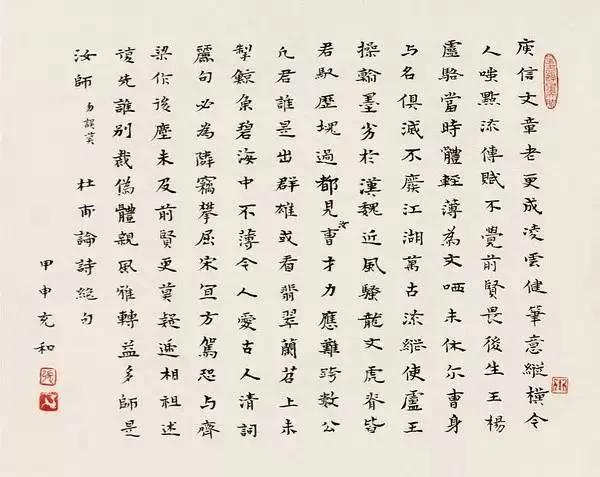 庾信文章老更成凌雲健筆意縱橫今
人嗤點流傳賦不覺前賢畏後生王楊
盧駱當時體輕薄為文哂未休尔曹身
与名俱滅不廢江湖萬古流縱使盧王
操翰墨劣於漢魏近風騷龍文虎脊皆
君馭歷塊過都見尔曹才力應難跨數公
凡君誰是出群雄或看翡翠蘭苕上未
掣鯨魚碧海中不薄今人愛古人清詞
麗句必為隣竊攀屈宋宜方駕恐与齊
梁作後塵未及前賢更莫疑遞相祖述
復先誰別裁偽體親風雅轉益多師是
汝師 勿誤莫 杜甫論詩絕句
甲申充和